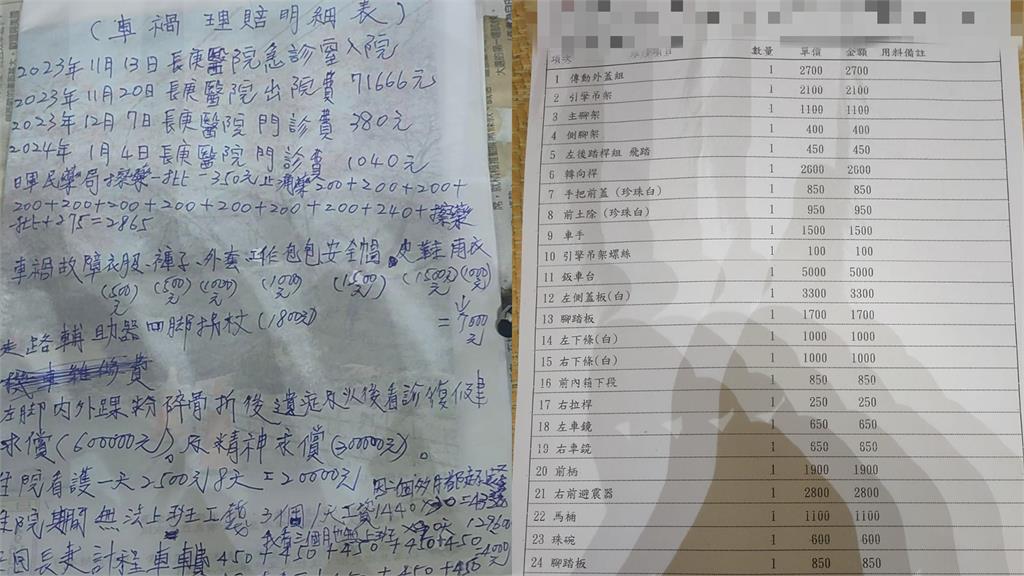 (車禍理賠明細表)
2023年11月13日長庚醫院急診室入院
2023年11月20日長庚醫院出院費 71666元
2023年12月7日長庚醫院門診費 380元
2024年1月4日長庚醫院門診費 1040元
民藥局擦藥一批-350元 200+200+200+
200+200+200+200+200+200+200+240+擦藥
一批+275=2865
車禍故障衣服、褲子、外套、工作包包安全帽、皮鞋雨衣
(500元) (500元) (1000元) (1000元) (1500元) (1500元) (1000元)
=7000元
走路輔助器四腳拐杖(1800元)
機車維修費
左腳內外踝粉碎骨折後遺症及以後看診復健
求償(600000元)。及精神求償(300000元)。
住院看護一天2500元8天=20000元
住院期間無法上班工資 3個 1天工資1440
回長庚計程車車轉450+450+450+450+450
項次 數量 單價 金額 用料備註
1 傳動外蓋組 1 2700 2700
2 引擎吊架 1 2100 2100
3 主腳架 1 1100 1100
4 側腳架 1 400 400
5 左後踏桿組 飛踏 1 450 450
6 轉向桿 1 2600 2600
7 手把前蓋(珍珠白) 1 850 850
8 前土除(珍珠白) 1 950 950
9 車手 1 1500 1500
10 引擎吊架螺絲 1 100 100
11 鈑車台 1 5000 5000
12 左側蓋板(白) 1 3300 3300
13 腳踏板 1 1700 1700
14 左下條(白) 1 1000 1000
15 右下條(白) 1 1000 1000
16 前內箱下段 1 850 850
17 右拉桿 1 250 250
18 左車鏡 1 650 650
19 右車鏡 1 650 650
20 前柄 1 1900 1900
21 右前避震器 1 2800 2800
22 馬桶 1 1100 1100
23 珠碗 1 600 600
24 腳踏板 1 850 850